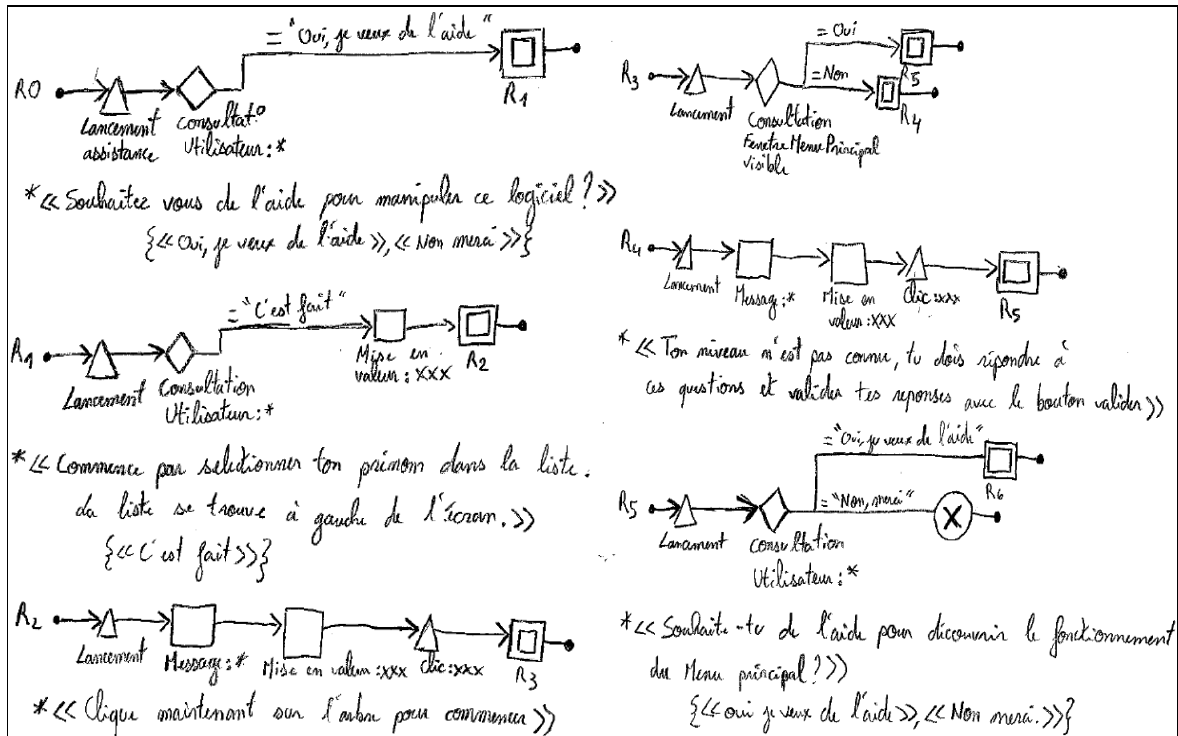 = "Oui, je veux de l'aide"
R0
R1
Lancement
assistance
Consultat°
Utilisateur : *
* << Souhaitez vous de l'aide pour manipuler ce logiciel ? >>
{<< Oui, je veux de l'aide >>, << Non merci >>}
= "C'est fait"
R1
Lancement
Consultation
Utilisateur : *
Mise en
valeur : XXX
R2
* << Commence par selectionner ton prénom dans la liste.
La liste se trouve à gauche de l'écran. >>
{<< C'est fait >>}
R2
Lancement
Message : *
Mise en valeur : xxx
clic : xxx
R3
* << Clique maintenant sur l'arbre pour commencer >>
= Oui
R5
R3
= Non
R4
Lancement
Consultation
Fenetre Menu Principal
visible
R4
Lancement
Message : *
Mise en
valeur : XXX
Clic : xxx
R5
* << Ton niveau n'est pas connu, tu dois répondre à
ces questions et valider tes reponses avec le bouton valider >>
= "Oui, je veux de l'aide"
R6
R5
= "Non, merci"
X
Lancement
Consultation
Utilisateur : *
* << Souhaite-tu de l'aide pour découvrir le fonctionnement
du Menu principal ? >>
{<< oui je veux de l'aide >>, << Non merci. >>}